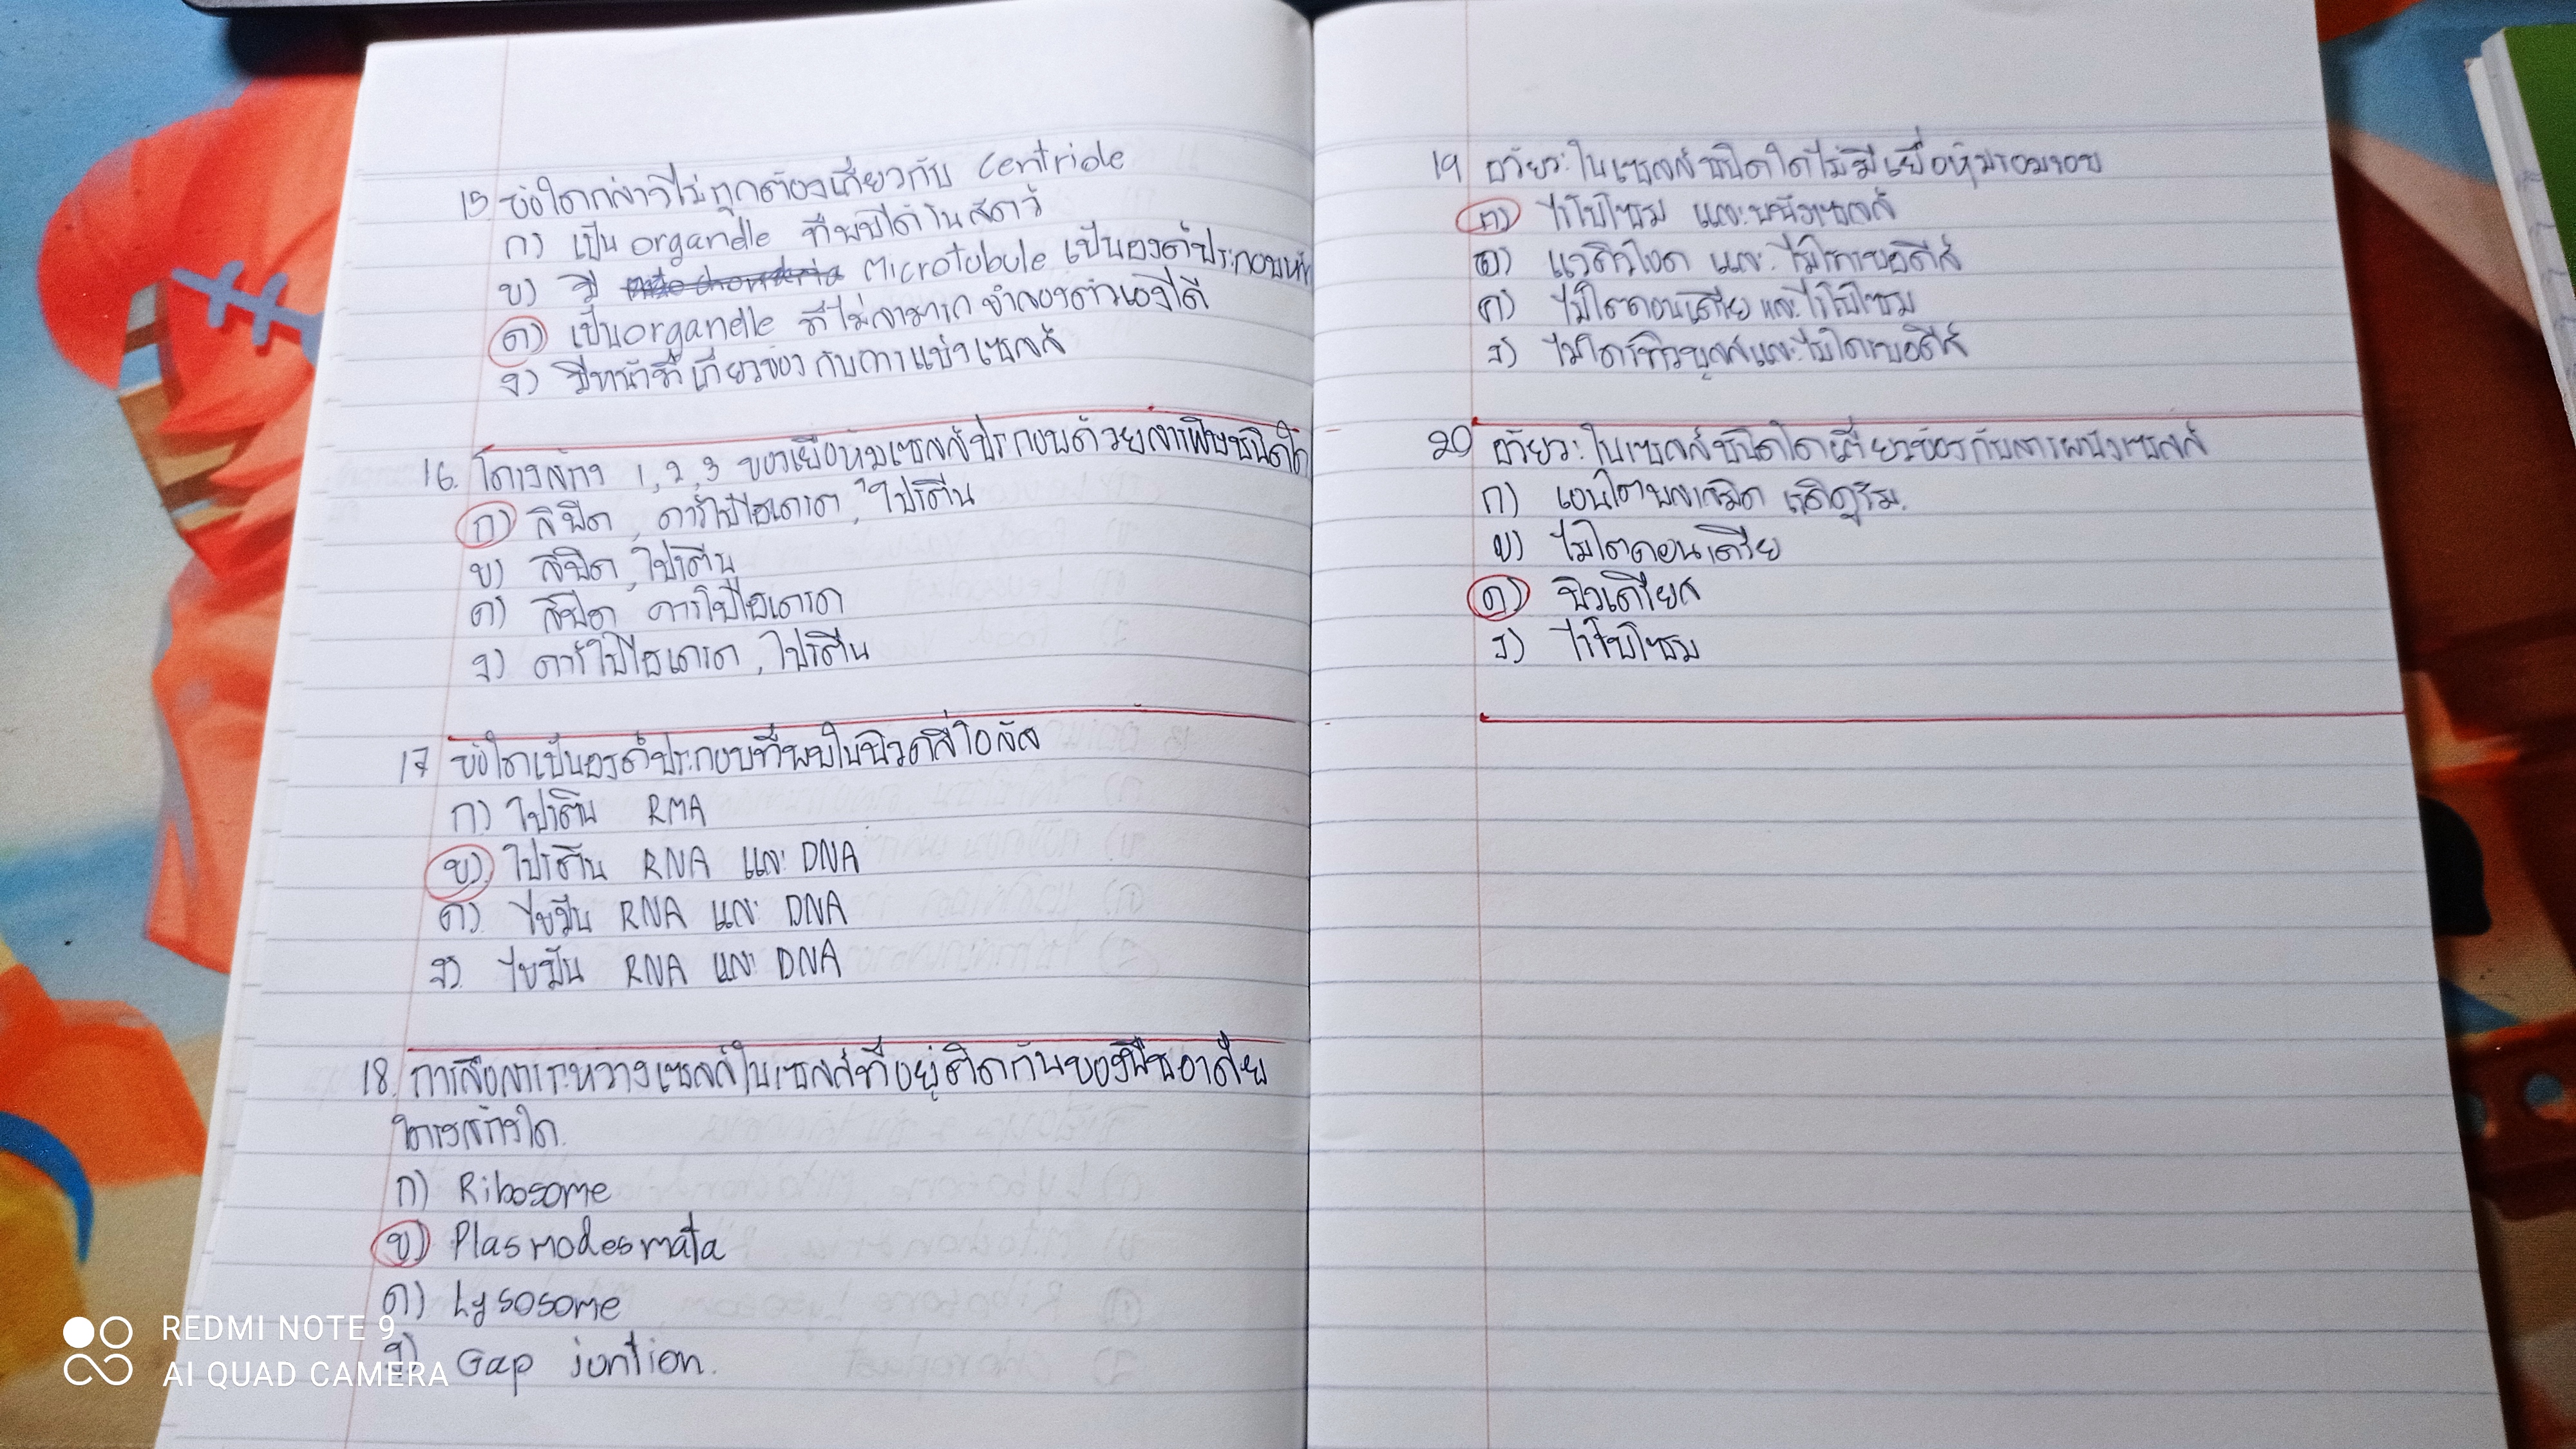 15 ข้อใดกล่าวไม่ถูกต้องเกี่ยวกับ centriole
ก) เป็น organelle ที่พบได้ในสัตว์
ข) มี Microtubule เป็นองค์ประกอบหลัก
ค) เป็น organelle ที่ไม่สามารถจำลองตัวเองได้
ง) มีหน้าที่เกี่ยวข้องกับการแบ่งเซลล์
16. โครงสร้าง 1, 2, 3 ของเยื่อหุ้มเซลล์ประกอบด้วยสารเคมีชนิดใด
ก) ลิพิด, คาร์โบไฮเดรต, โปรตีน
ข) ลิพิด, โปรตีน
ค) ลิพิด คาร์โบไฮเดรต
ง) คาร์โบไฮเดรต, โปรตีน
17 ข้อใดเป็นองค์ประกอบที่พบในนิวคลีโอลัส
ก) โปรตีน RMA
ข) โปรตีน RNA และ DNA
ค) ไขมัน RNA และ DNA
ง) ไขมัน RNA และ DNA
18. การสื่อสารระหว่างเซลล์ในเซลล์ที่อยู่ติดกันของพืชอาศัย
โครงสร้างใด
ก) Ribosome
ข) Plasmodesmata
ค) Lysosome
ง) Gap juntion.
19 อวัยวะในเซลล์ชนิดใดไม่มีเยื่อหุ้มรอบรอบ
ก) ไรโบโซม และผนังเซลล์
ข) แวคิวโอล และไมโครบอดีส์
ค) ไมโตคอนเดรีย และไรโบโซม
ง) ไมโครทิวบูลสและไมโครบอดีส์
20 อวัยวะในเซลล์ชนิดใดเกี่ยวข้องกับสารผนังเซลล์
ก) เอนโดพลาสมิค เรติคูรัม.
ข) ไมโตคอนเดรีย
ค) นิวเคลียส
ง) ไรโบโซม
REDMI NOTE 9
AI QUAD CAMERA